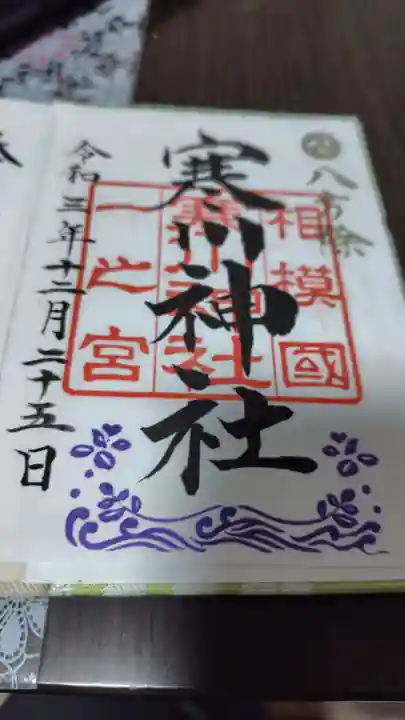 八方除
寒川神社
相模國
寒川神社
一之宮
令和三年十二月二十五日